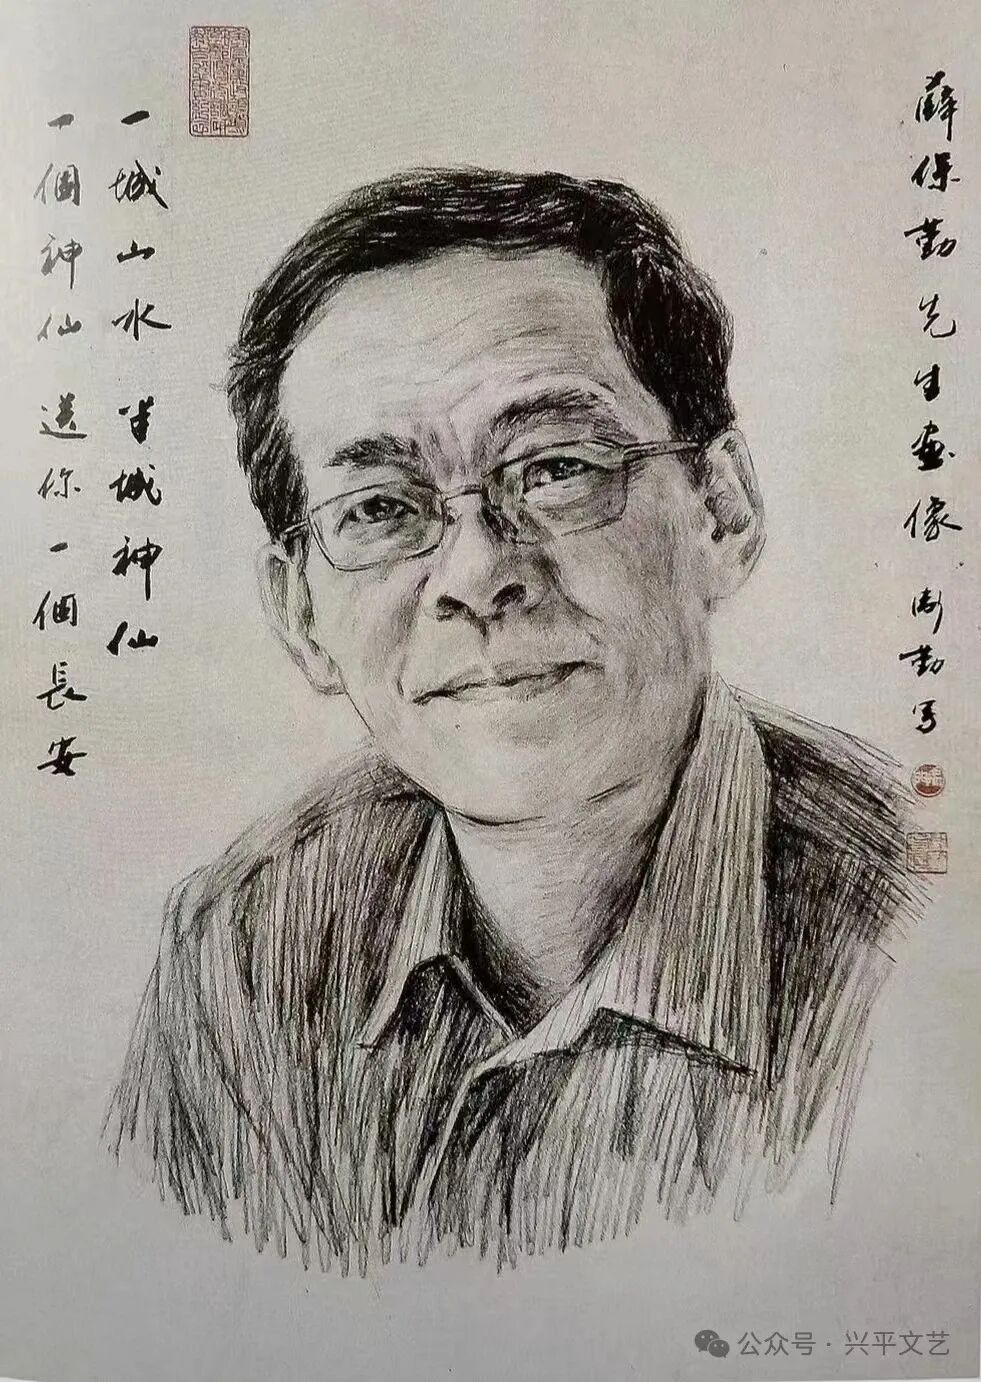 薛保勤先生画像 衛勤写
一城山水半城神仙
一個神仙送你一個長安
公众号 · 兴平文艺